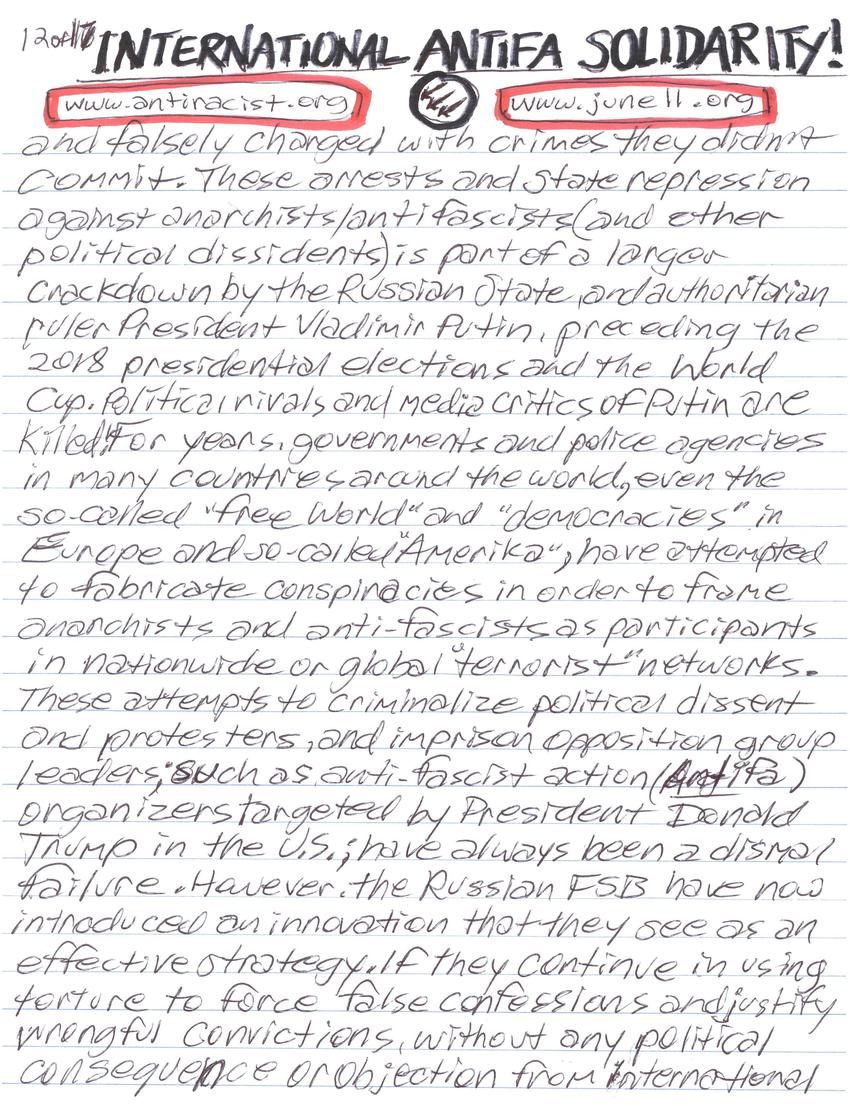 12 of 17 INTERNATIONAL ANTIFA SOLIDARITY!
www.antiracist.org www.june11.org
and falsely charged with crimes they didn't
commit. These arrests and State repression
against anarchists/antifascists (and other
political dissidents) is part of a larger
crackdown by the Russian State, and authoritarian
ruler President Vladimir Putin, preceding the
2018 presidential elections and the World
Cup. Political rivals and media critics of Putin are
killed! For years, governments and police agencies
in many countries around the world, even the
so-called "free World" and "democracies" in
Europe and so-called "Amerika", have attempted
to fabricate conspiracies in order to frame
anarchists and anti-fascists as participants
in nationwide or global "terrorist" networks.
These attempts to criminalize political dissent
and protesters, and imprison opposition group
leaders, such as anti-fascist action (Antifa)
organizers targeted by President Donald
Trump in the U.S.; have always been a dismal
failure. However, the Russian FSB have now
introduced an innovation that they see as an
effective strategy. If they continue in using
torture to force false confessions and justify
wrongful convictions, without any political
consequence or objection from international